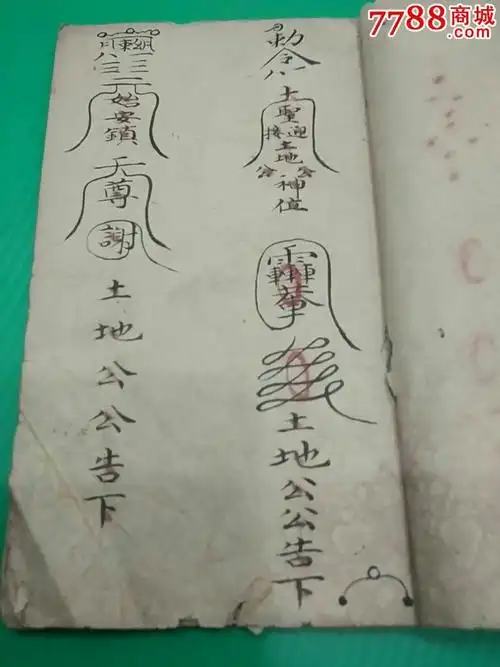 7788商城
勅令
八一
上聖
接迎
土地
公公
神位
土地公公告下
元
始安鎮
天尊
謝
土地公公告下